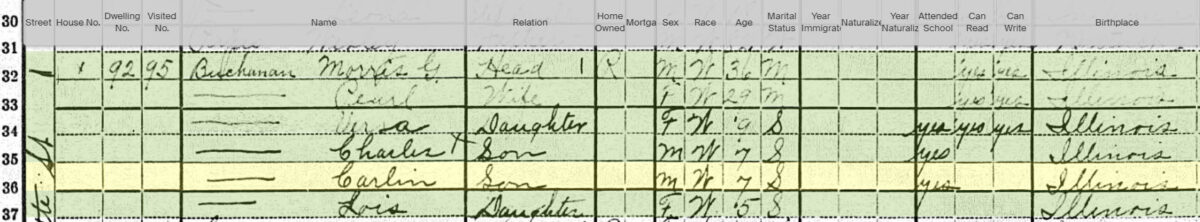 Street House No. Dwelling No. Visited No. Name Relation Home Owned Mortga Sex Race Age Marital Status Year Immigrate Naturalize Year Naturaliz Attended School Can Read Can Write Birthplace
30
31
32 92 95 Buchanan Morris G Head 1 R M W 36 M yes yes Illinois
33 Pearl Wife F W 29 M yes yes Illinois
34 Daughter F W 9 S yes yes yes Illinois
35 Charles Son M W 7 S yes Illinois
36 Carlin Son M W 7 S yes Illinois
37 Lois Daughter F W 5 S Illinois